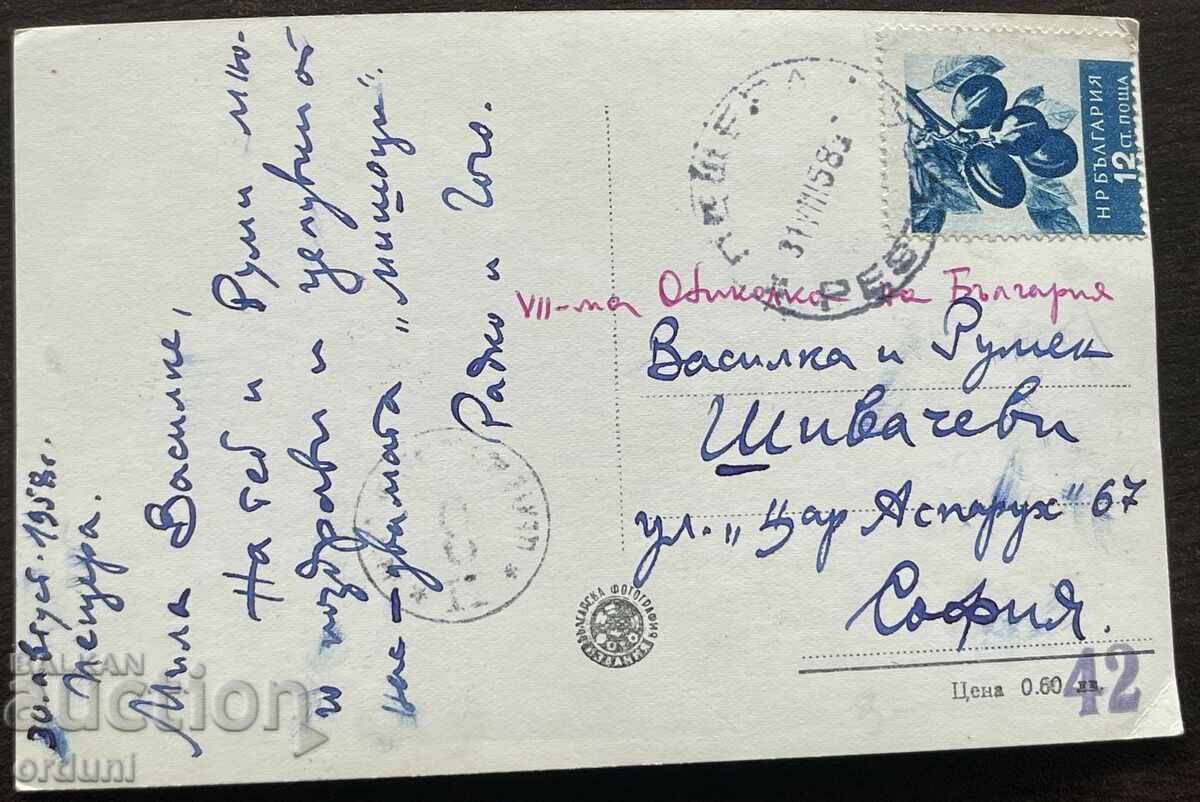 30. август. 1958 г.
Пещера.
Мила Василке,
На теб и Руми мно-
го поздрави и целувки от
нас – двамата „мишоци“.
Радко и Гого.
НР БЪЛГАРИЯ
12 СТ. ПОЩА
31 VIII 58
VII-ма Обиколка на България
Василка и Румен
Шивачеви
ул. „Цар Аспарух“ 67
София.
БЪЛГАРСКА ФОТОГРАФИЯ
Цена 0.60 лв.
42
BALKAN
auction
orduni